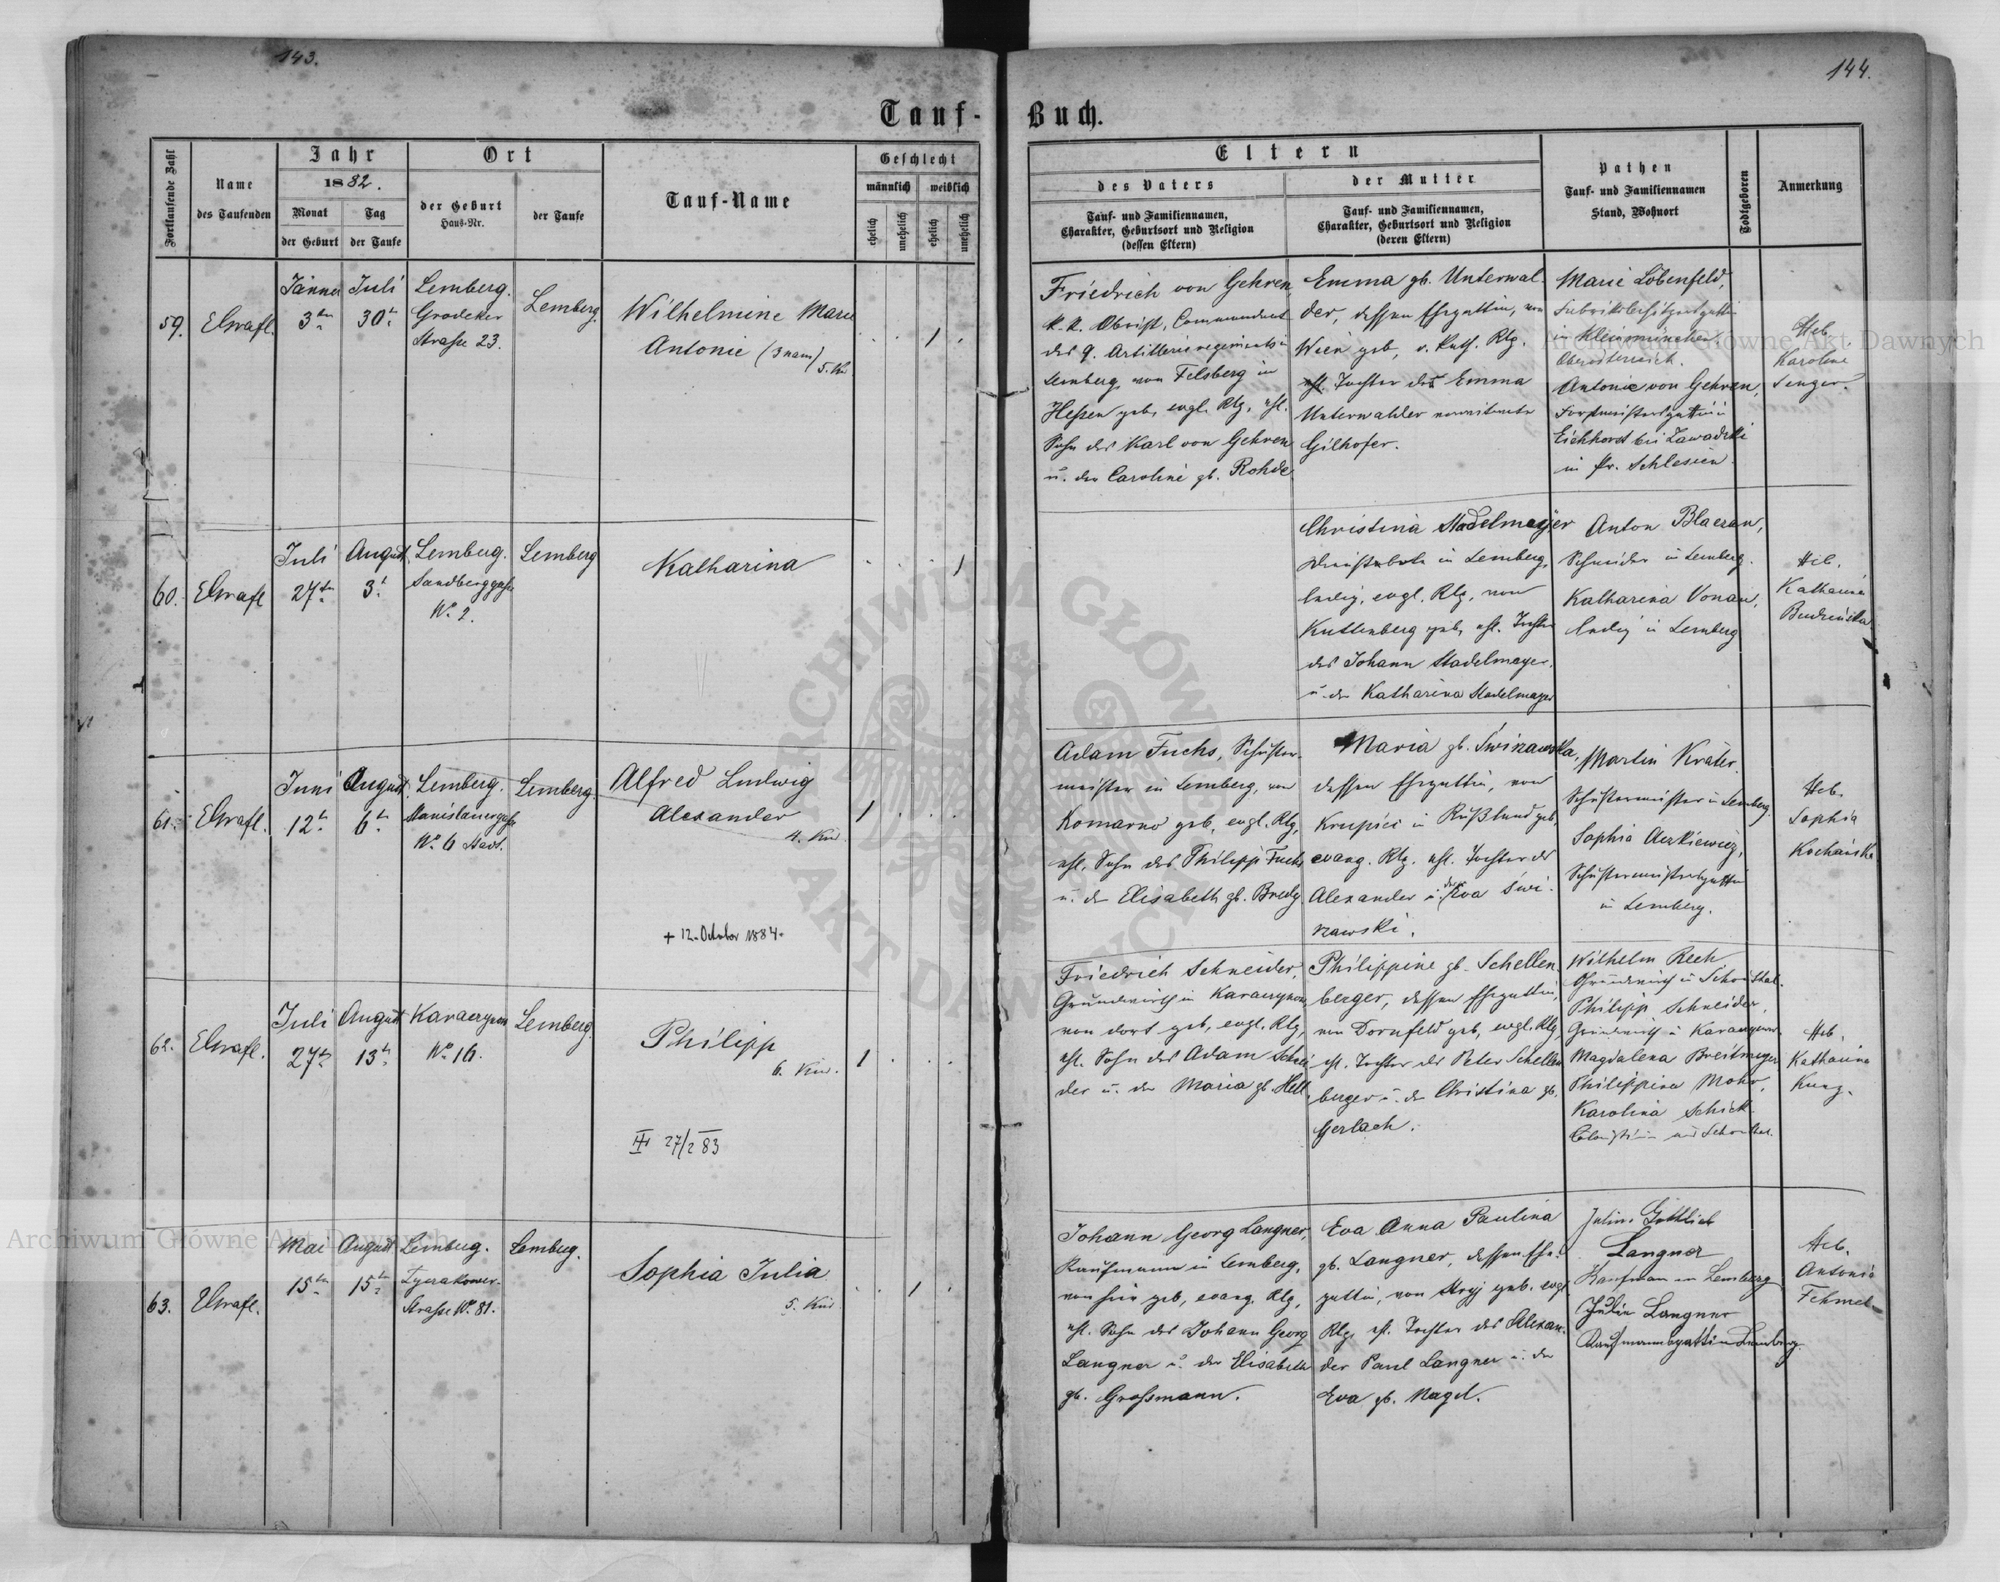 143.
144.
Tauf-Buch.
Fortlaufende Zahl
Name
des Taufenden
Jahr
1882.
Monat
der Geburt
Tag
der Taufe
Ort
der Geburt
Haus-Nr.
der Taufe
Tauf-Name
Geschlecht
männlich
weiblich
ehelich
unehelich
ehelich
unehelich
Eltern
des Vaters
Tauf- und Familiennamen,
Charakter, Geburtsort und Religion
(dessen Eltern)
der Mutter
Tauf- und Familiennamen,
Charakter, Geburtsort und Religion
(deren Eltern)
Pathen
Tauf- und Familiennamen
Stand, Wohnort
Todtgeboren
Anmerkung
59.
Jänner
3
Juli
30
Lemberg.
Grodeker
Straße 23.
Lemberg.
Wilhelmine Marie
Antonie
1
Friedrich von Gehren,
k. k. Obrist, Commandant
des 9. Artillerieregiments in
Lemberg, von Felsberg in
Hessen geb, evgl. Rlg, ehl.
Sohn des Karl von Gehren
u. der Caroline gb. Rohde
Emma gb. Unterwal-
der, dessen Ehegattin, von
Wien geb, Rlg.
ehl. Tochter der Emma
Unterwalder
Gilhofer.
Marie Löbenfeld,
Fabriksbesitzersgattin
in Kleinmünchen
Oberösterreich.
Antonie von Gehren,
Forstmeistersgattin in
Eichhorst bei Zawadzki
in Pr. Schlesien.
Heb.
Karoline
Senger.
60.
Juli
27
August
3
Lemberg.
Sandberggasse
No. 2.
Lemberg
Katharina
1
Christina Stadelmayer
Dienstbote in Lemberg,
ledig, evgl. Rlg, von
Kuttenberg geb, ehl. Tochter
des Johann Stadelmayer
u. der Katharina Stadelmayer
Anton Blaezan,
Schneider in Lemberg.
Katharina Vonau,
ledig in Lemberg
Heb.
Katharina
Budzińska
61.
Juni
12
August
6
Lemberg.
No. 6 Stadt.
Lemberg.
Alfred Ludwig
Alexander
4. Kind.
+ 12. October 1884.
1
Adam Fuchs, Schuster-
meister in Lemberg, von
Komarno geb, evgl. Rlg,
ehl. Sohn des Philipp Fuchs
u. der Elisabeth gb. Bredy
Maria gb. Świnawska,
dessen Ehegattin, von
Krupiec in Rußland geb,
evang. Rlg. ehl. Tochter des
Alexander u. der Eva Świ-
nawski.
Martin Kräter
Schustermeister in Lemberg.
Sophia
Schustermeistersgattin
in Lemberg.
Heb.
Sophia
Kochańska
62.
Juli
27
August
13
No. 16.
Lemberg.
Philipp
6. Kind.
27/2 83
1
Friedrich Schneider,
Grundwirth in
von dort geb, evgl. Rlg,
ehl. Sohn des Adam Schnei-
der u. der Maria gb. Hell
Philippine gb. Schellen-
berger, dessen Ehegattin,
von Dornfeld geb, evgl. Rlg,
ehl. Tochter des Peter Schellen-
berger u. der Christina gb.
Gerlach.
Wilhelm Rech
Grundwirth in Schönthal.
Philipp Schneider,
Grundwirth in
Magdalena Breitmayer
Philippina Mohr,
Karolina Schick
Heb.
Katharina
Kunz.
63.
Mai
15
August
15
Lemberg.
Straße No. 81.
Lemberg.
Sophia Julia
5. Kind.
1
Johann Georg Langner,
Kaufmann in Lemberg,
von hier geb, evang. Rlg,
ehl. Sohn des Johann Georg
Langner u. der Elisabeth
gb. Grossmann.
Eva Anna Paulina
gb. Langner, dessen Ehe-
gattin, von Stryj geb. evgl.
Rlg, ehl. Tochter des Alexan-
der Paul Langner u. der
Eva gb. Nagel.
Julius Gottlieb
Langner
Kaufmann in Lemberg
Julie Langner
Kaufmannsgattin Lemberg.
Heb.
Antonia
Archiwum Główne Akt Dawnych
Archiwum Główne Akt Dawnych
ARCHIWUM GŁÓWNE
AKT DAWNYCH